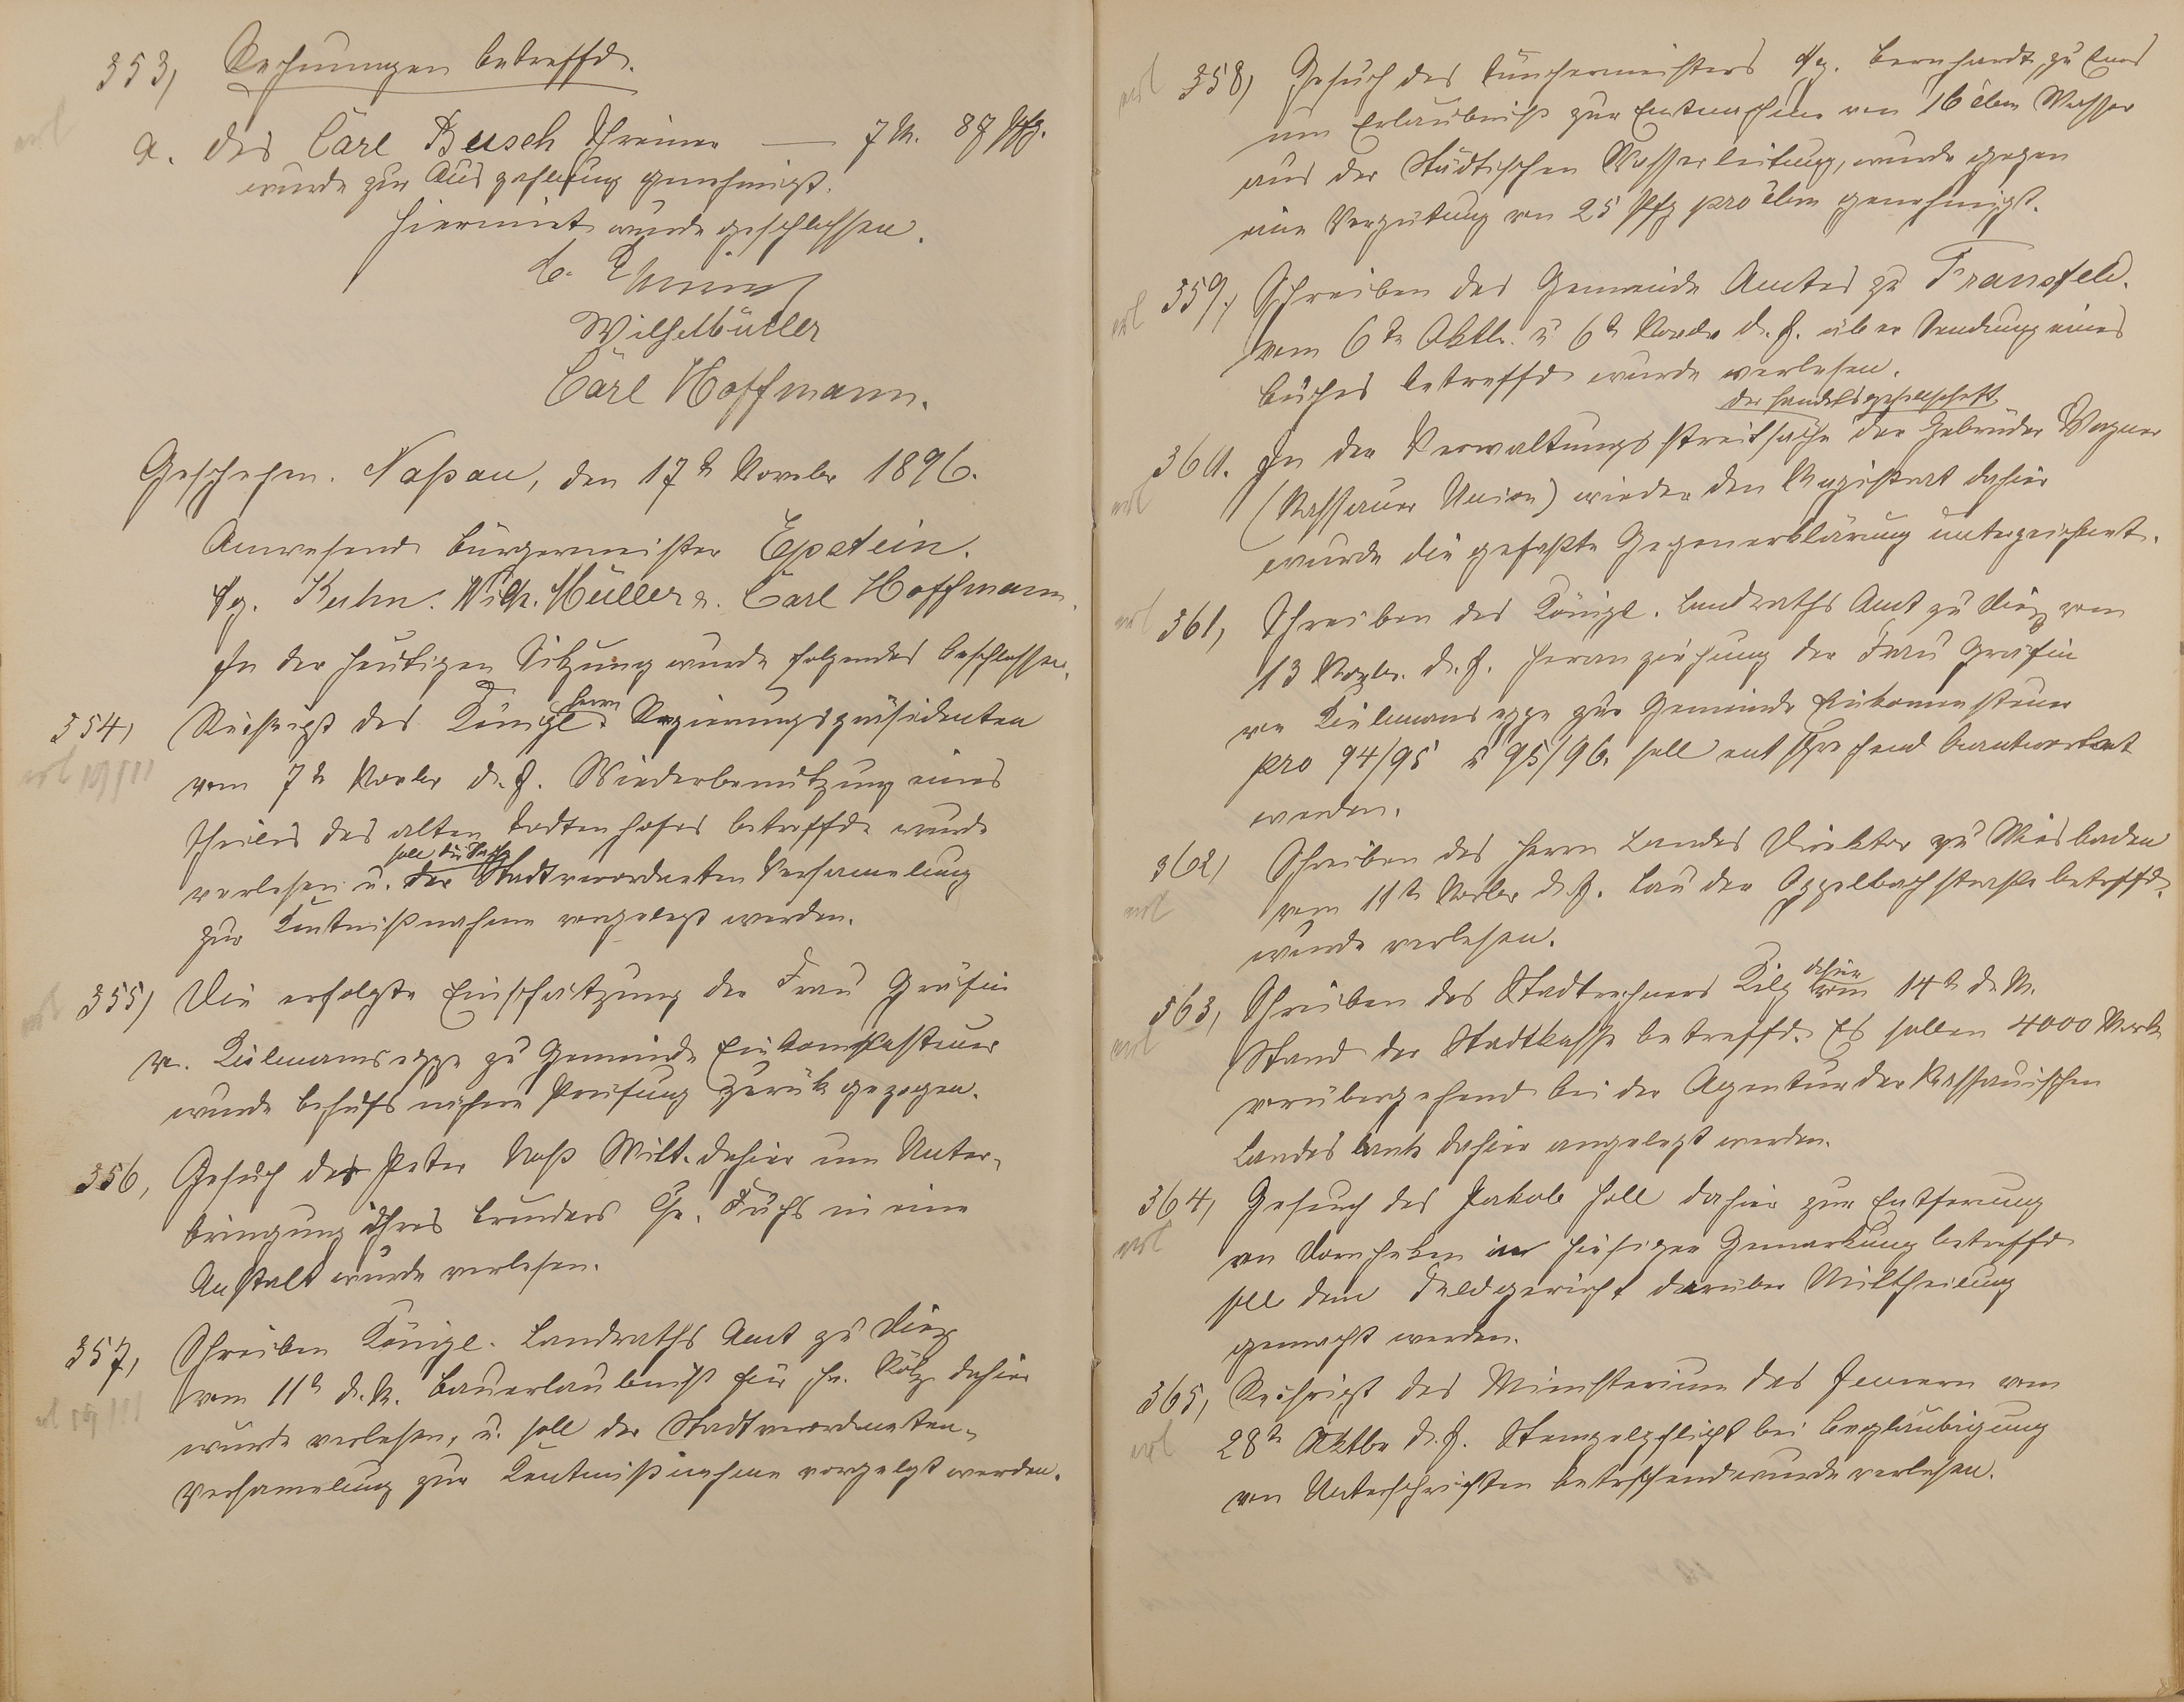 353, Rechnungen betreffd.
a. des Carl Busch Schreiner — 7 M. 87 Pfg.
wurde zur Auszahlung genehmigt.
Hiermit wurde geschlossen.
Wilh Müller
Carl Hoffmann.
Geschehen. Naßau, den 17t Novbr 1896.
Anwesend Bürgermeister Epstein.
Hg. Kuhn. Wilh. Müller u. Carl Hoffmann.
In der heutigen Sitzung wurde folgendes beschlossen.
354, Rescript des Königl. Herrn Regierungspräsidenten
vom 7t Novbr d. J. Wiederbenutzung eines
Theiles des alten Todtenhofes betreffd wurde
verlesen u. soll die Sache der Stadtverordneten Versamlung
zur Kentnißnahme vorgelegt werden.
355, Die erfolgte Einschätzung der Frau Gräfin
v. Kielmannsegge zu Gemeinde Einkomstesteuer
wurde behufs nähere Prüfung zurük gezogen.
356, Gesuch des Peter Noß Witt. dahier um Unter-
bringung ihres Bruders Chr. Fuchs in eine
Anstalt wurde verlesen.
357, Schreiben Königl. Landraths Amt zu Diez
vom 11t d. M. Bauerlaubniß für Hr. Kötz dahier
wurde verlesen, u. soll der Stadtverordneten-
Versamelung zur Kentnißnahme vorgelegt werden.
358, Gesuch des Tünchermeisters Hg. Bernhardt zu Ems
um Erlaubniß zur Entnahme von 16 cbm Wasser
aus der Städtischen Wasserleitung, wurde gegen
eine Vergütung von 25 Pfg pro cbm genehmigt.
359, Schreiben des Gemeinde Amtes zu Transfeld.
vom 6te Oktb. u 6t Novbr d. J. über Sendung eines
Buches betreffd wurde verlesen.
der Handelsgesellschaft
360. In der Verwaltungsstreitsache der Gebrüder Wagner
(Nassauer Union) wieder den Magistrat dahier
wurde die gefaßte Gegenerklärung unterzeichnet.
361, Schreiben des Königl. Landraths Amt zu Diez vom
13 Novbr. d. J. Heranziehung der Frau Gräfin
von Kielmannsegge zur Gemeinde Einkommensteuer
pro 94/95 u 95/96. soll entsprechend beantwortet
werden.
362, Schreiben des Herrn Landes Direktor zu Wiesbaden
vom 11te Novbr d. J. Bau der Oppelbachstraße betreffd.
wurde verlesen.
363, Schreiben des Stadtrechners Kilz dahier vom 14t d. M.
Stand der Stadtkasse betreffd. Es sollen 4000 Mark
vorübergehend bei der Agentur der Nassauischen
Landesbank dahier angelegt werden.
364, Gesuch des Jakob Holl dahier zur Entfernung
von Dornheken in hiesiger Gemarkung betreffd
soll dem Feldgericht darüber Mittheilung
gemacht werden.
365, Rescript des Ministerium des Innern vom
28te Oktbr d. J. Stempelpflicht bei Beglaubigung
von Unterschriften betreffend wurde verlesen.